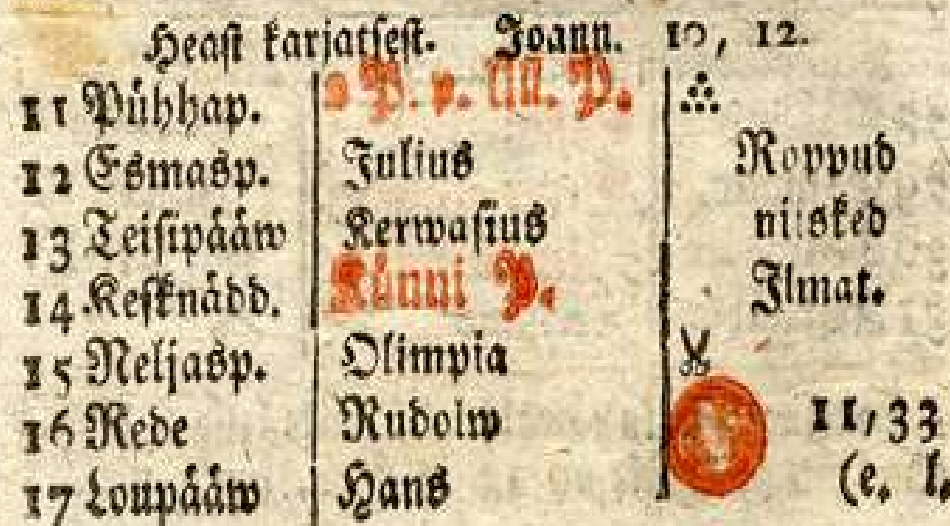 Heast karjatsest. Joann. 10, 12.
11 Pühhap. 2 P. p. Ül. P.
12 Esmasp. Julius Roppud
13 Teisipääw Kerwasius niisked
14 Kesknädd. Künni P. Ilmat.
15 Neljasp. Olimpia
16 Rede Rudolw 11, 33
17 Loupääw Hans (e. l.